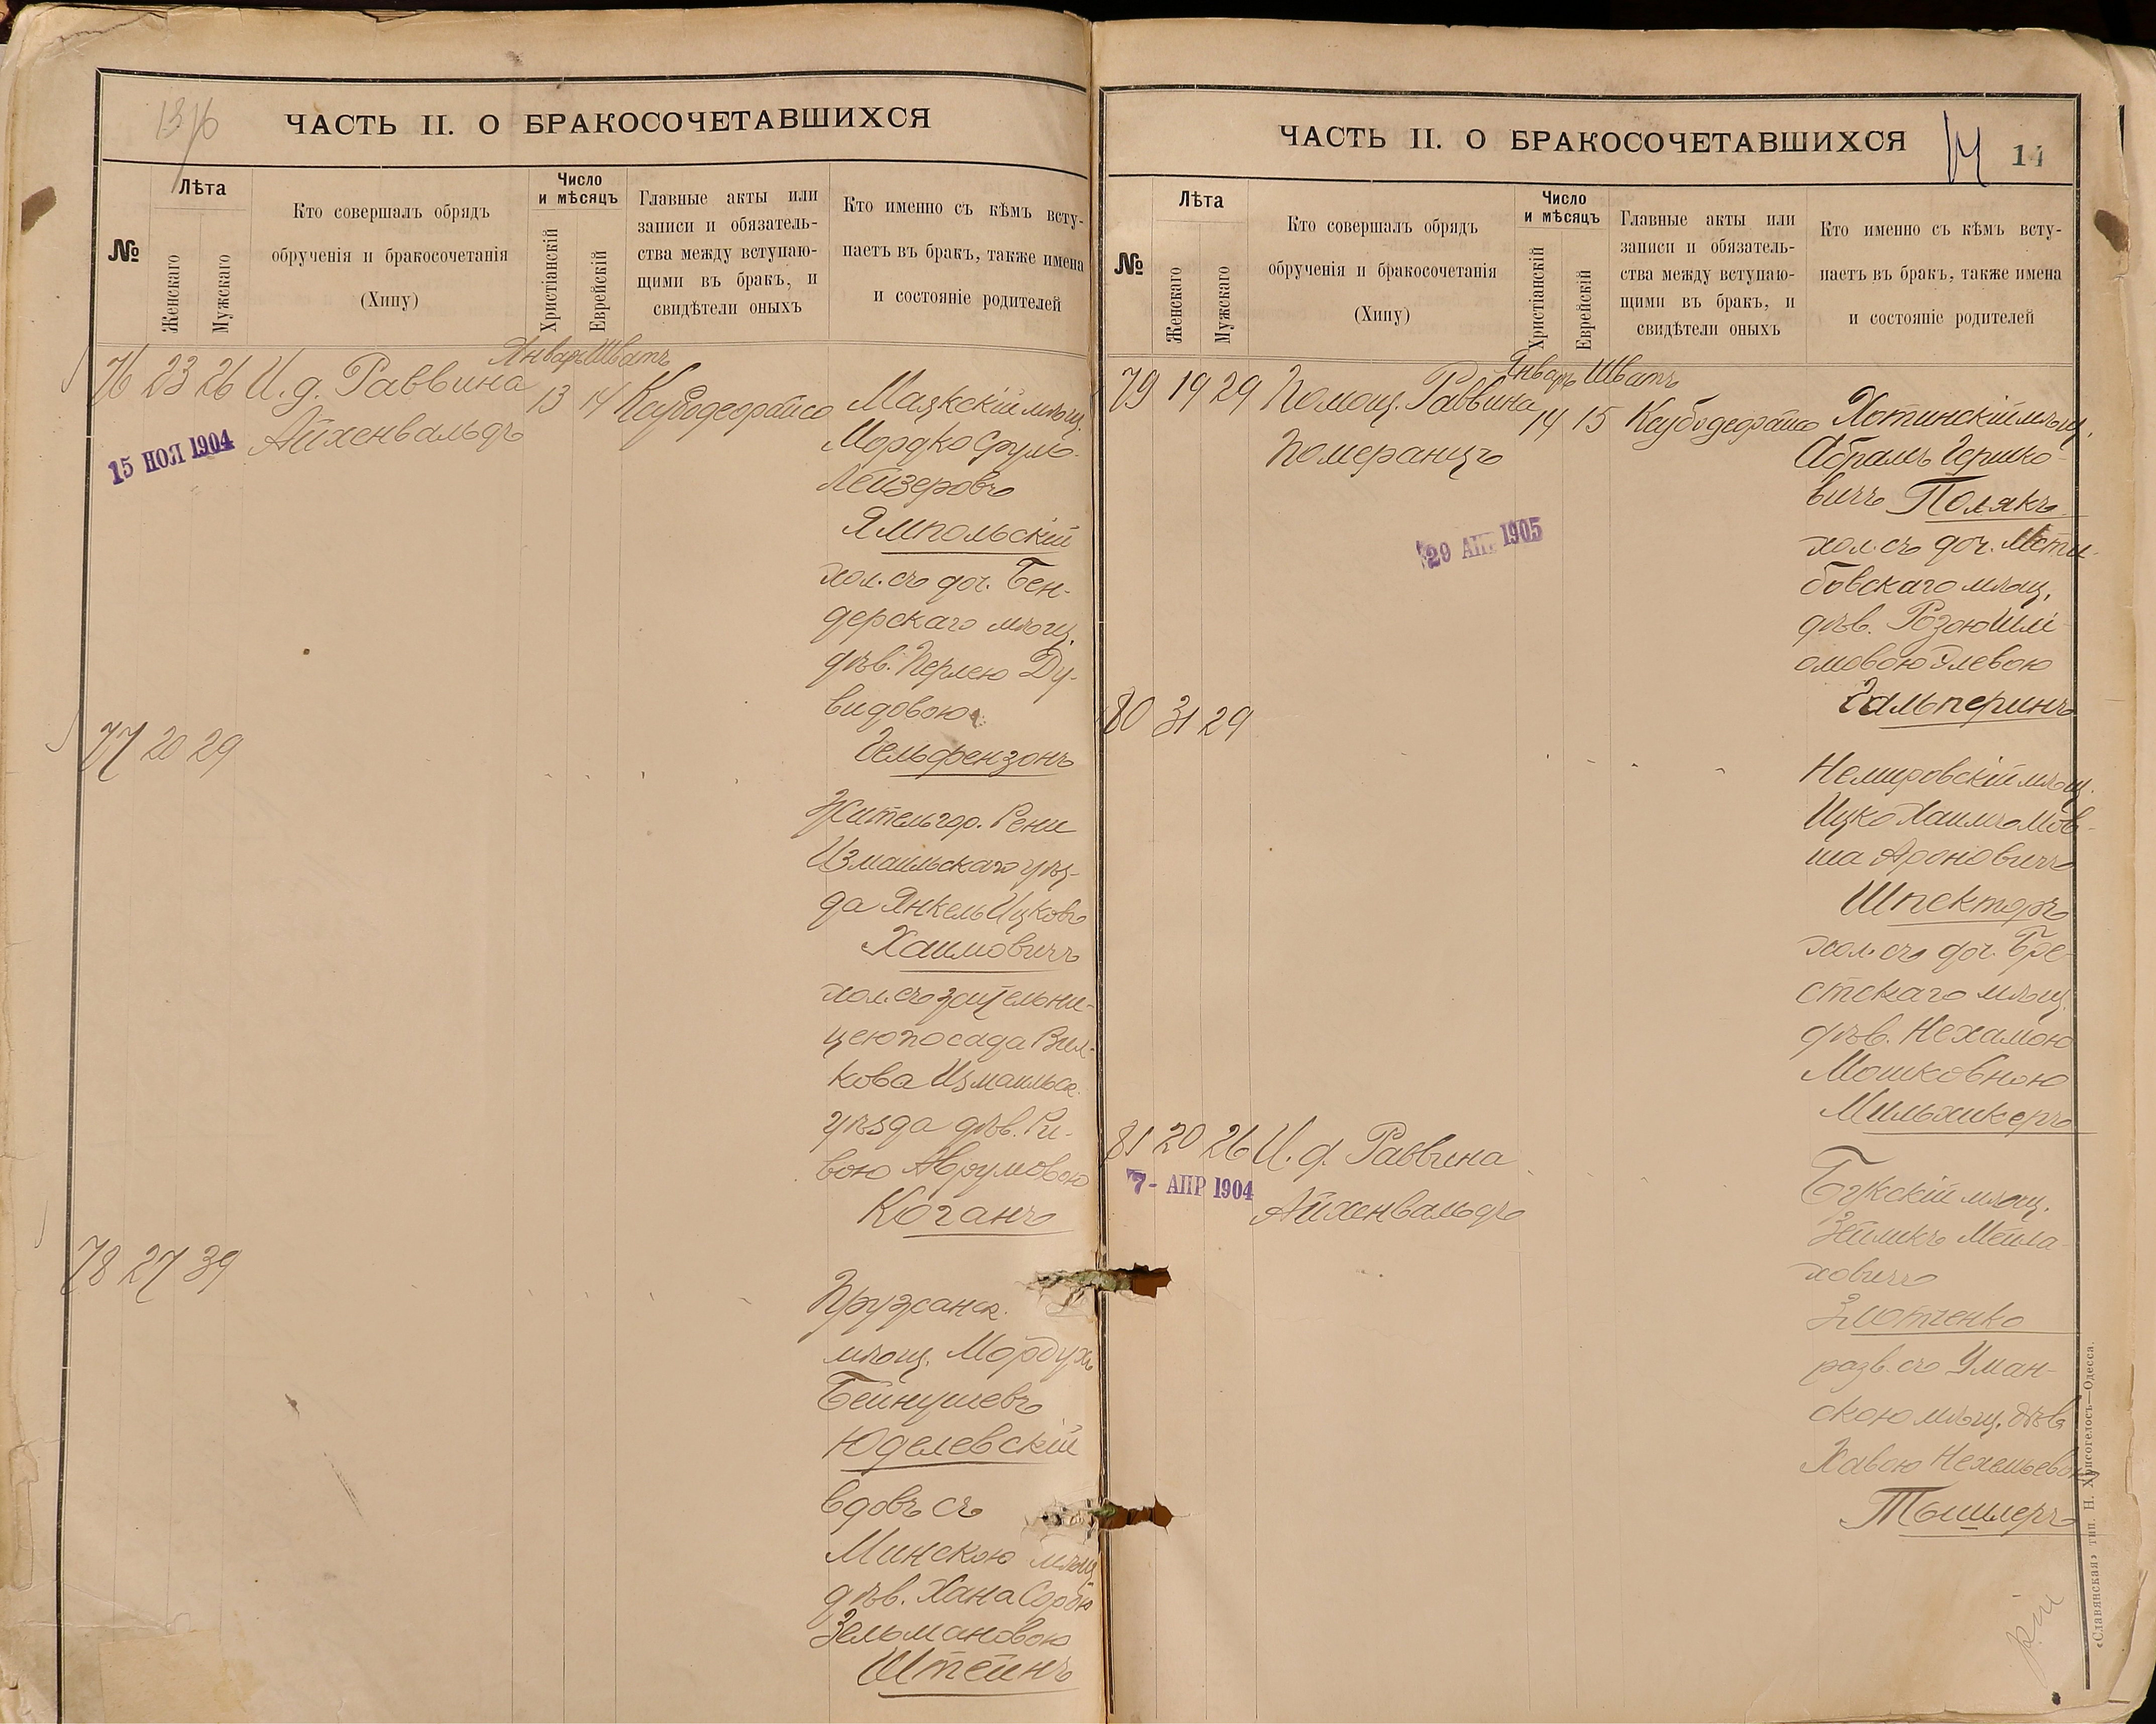 13 76
ЧАСТЬ II. О БРАКОСОЧЕТАВШИХСЯ
№
Лѣта
Женскаго
Мужскаго
Кто совершалъ обрядъ
обрученія и бракосочетанія
(Хипу)
Число
и мѣсяцъ
Христіанскій
Еврейскій
Главные акты или
записи и обязатель-
ства между вступаю-
щими въ бракъ, и
свидѣтели оныхъ
Кто именно съ кѣмъ всту-
паетъ въ бракъ, также имена
и состояніе родителей
76 23 26 И. д. Раввина
Айхенвальдъ
15 НОЯ 1904
Январь Шватъ
13 14
Маякскій мѣщ.
Мордко Сруль-
Лейзеровъ
Ямпольскій
хол. съ доч. Бен-
дерскаго мѣщ.
дѣв. Перлею Ду-
видовою
Гельфензонъ
77 20 29
Житель гор. Рени
Измаильскаго уѣз-
да Янкель Ицковъ
Хаимовичъ
хол. съ жительни-
цею посада Вил-
кова Измаильск.
уѣзда дѣв. Ри-
вою Аврумовою
Коганъ
78 27 39
Пружанск.
мѣщ. Мордухъ
Бейнушевъ
Юделевскій
вдовъ съ
Минскою мѣщ.
дѣв. Хана Сорою
Зельмановою
Штейнъ
ЧАСТЬ II. О БРАКОСОЧЕТАВШИХСЯ
14 14
№
Лѣта
Женскаго
Мужскаго
Кто совершалъ обрядъ
обрученія и бракосочетанія
(Хипу)
Число
и мѣсяцъ
Христіанскій
Еврейскій
Главные акты или
записи и обязатель-
ства между вступаю-
щими въ бракъ, и
свидѣтели оныхъ
Кто именно съ кѣмъ всту-
паетъ въ бракъ, также имена
и состояніе родителей
79 19 29 Помощ. Раввина
Померанцъ
Январь Шватъ
14 15
29 АПР 1905
Хотинскій мѣщ.
Абрамъ Гершко-
вичъ Полякъ
хол. съ доч. Мсти-
бовскаго мѣщ.
дѣв. Розою Шлі-
омовою Элевою
Гальперинъ
80 31 29
Немировскій мѣщ.
Ицко Хаимъ Мов-
ша Ароновичъ
Шпекторъ
хол. съ доч. Бре-
стскаго мѣщ.
дѣв. Нехамою
Мошковною
Мильхикеръ
81 20 26 И. д. Раввина
Айхенвальдъ
7 - АПР 1904
Букскій мѣщ.
Зейликъ Мейла-
ховичъ
Злотченко
разв. съ Уман-
скою мѣщ. дѣв.
Хавою Нехемьевою
Тышлеръ
«Славянская» тип. Н. Хрисогелосъ—Одесса.